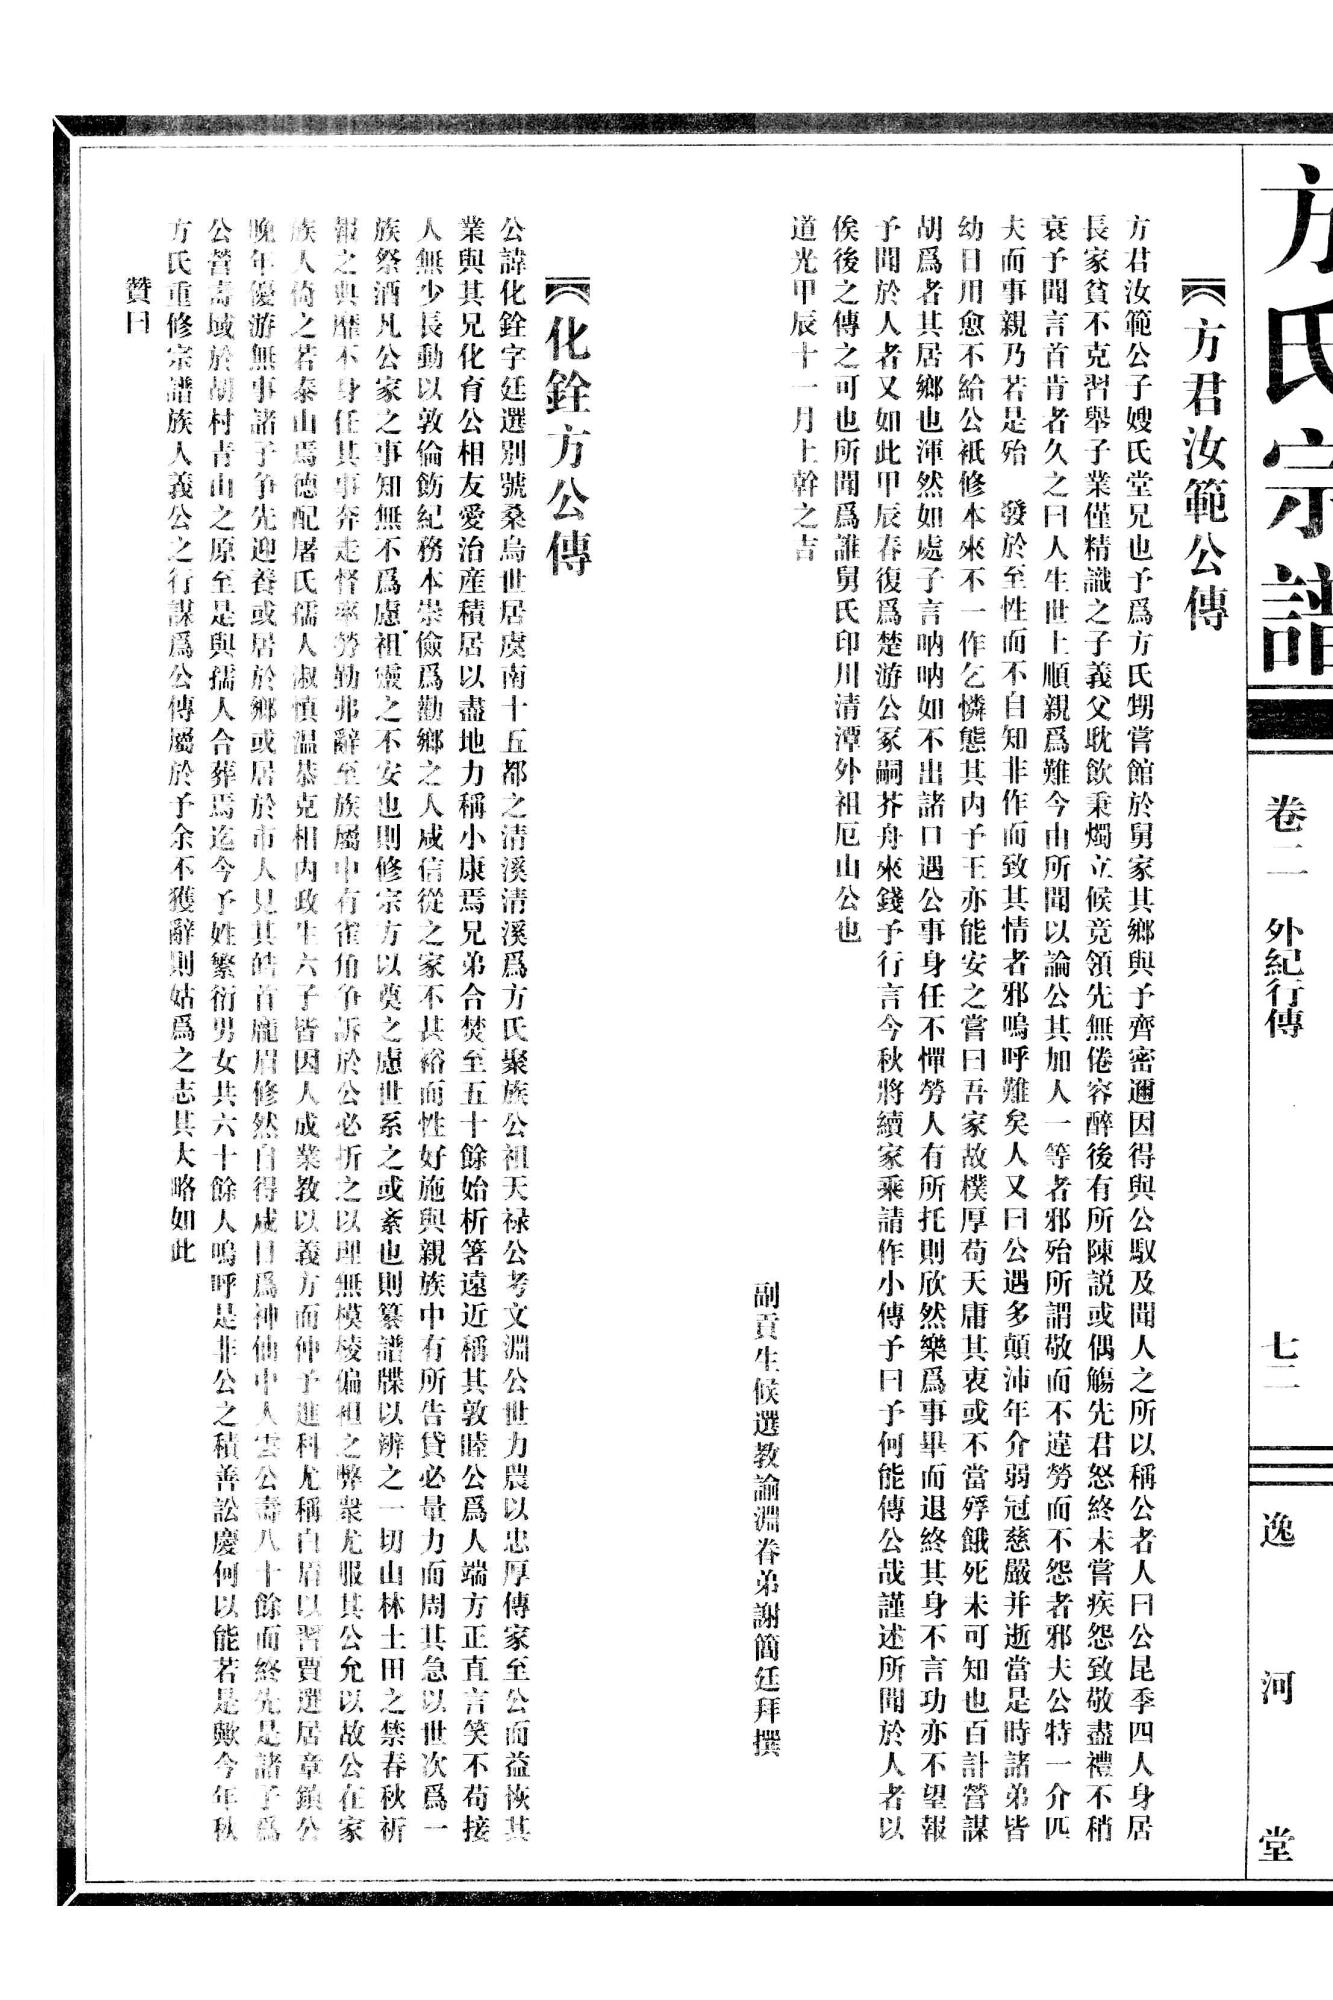 方氏宗譜
卷二　外紀行傳
七二
逸河堂
方君汝範公傳
方君汝範公子嫂氏堂兄也予爲方氏甥嘗館於舅家其鄉與予齊密邇因得與公馭及聞人之所以稱公者人曰公昆季四人身居
長家貧不克習舉子業僅精識之子義父耽飲秉燭立候竟領先無倦容醉後有所陳説或偶觴先君怒終未嘗疾怨致敬盡禮不稍
衰予聞言首肯者久之曰人生世上順親爲難今由所聞以論公其加人一等者邪殆所謂敬而不違勞而不怨者邪夫公特一介匹
夫而事親乃若是殆　發於至性而不自知非作而致其情者邪嗚呼難矣人又曰公遇多顛沛年介弱冠慈嚴并逝當是時諸弟皆
幼日用愈不給公祇修本來不一作乞憐態其内子王亦能安之嘗曰吾家故樸厚苟天庸其衷或不當殍餓死未可知也百計營謀
胡爲者其居鄉也渾然如處子言吶吶如不出諸口遇公事身任不憚勞人有所托則欣然樂爲事畢而退終其身不言功亦不望報
予聞於人者又如此甲辰春復爲楚游公冢嗣芥舟來錢予行言今秋將續家乘請作小傳予曰予何能傳公哉謹述所聞於人者以
俟後之傳之可也所聞爲誰舅氏印川清潭外祖厄山公也
道光甲辰十一月上幹之吉
副貢生候選教諭淵眷弟謝簡廷拜撰
化銓方公傳
公諱化銓字廷選别號桑烏世居虞南十五都之清溪清溪爲方氏聚族公祖天禄公考文淵公世力農以忠厚傳家至公而益恢其
業與其兄化育公相友愛治産積居以盡地力稱小康焉兄弟合焚至五十餘始析箸遠近稱其敦睦公爲人端方正直言笑不苟接
人無少長動以敦倫飭紀務本崇儉爲勸鄉之人咸信從之家不甚裕而性好施與親族中有所告貸必量力而周其急以世次爲一
族祭酒凡公家之事知無不爲慮祖靈之不安也則修宗方以奠之慮世系之或紊也則纂譜牒以辨之一切山林土田之禁春秋祈
報之典靡不身任其事奔走督率勞勤弗辭至族屬中有雀角争訴於公必折之以理無模棱偏袒之弊衆尤服其公允以故公在家
族人倚之若泰山焉德配屠氏孺人淑慎温恭克相内政生六子皆因人成業教以義方而仲子進科尤稱白眉以習賈選居章鎮公
晚年優游無事諸子争先迎養或居於鄉或居於市人見其皓首龐眉修然自得咸目爲神仙中人云公壽八十餘而終先是諸子爲
公營壽域於胡村青山之原至是與孺人合葬焉迄今予姓繁衍男女共六十餘人嗚呼是非公之積善訟慶何以能若是歟今年秋
方氏重修宗譜族人義公之行謀爲公傳屬於予余不獲辭則姑爲之志其大略如此
贊曰